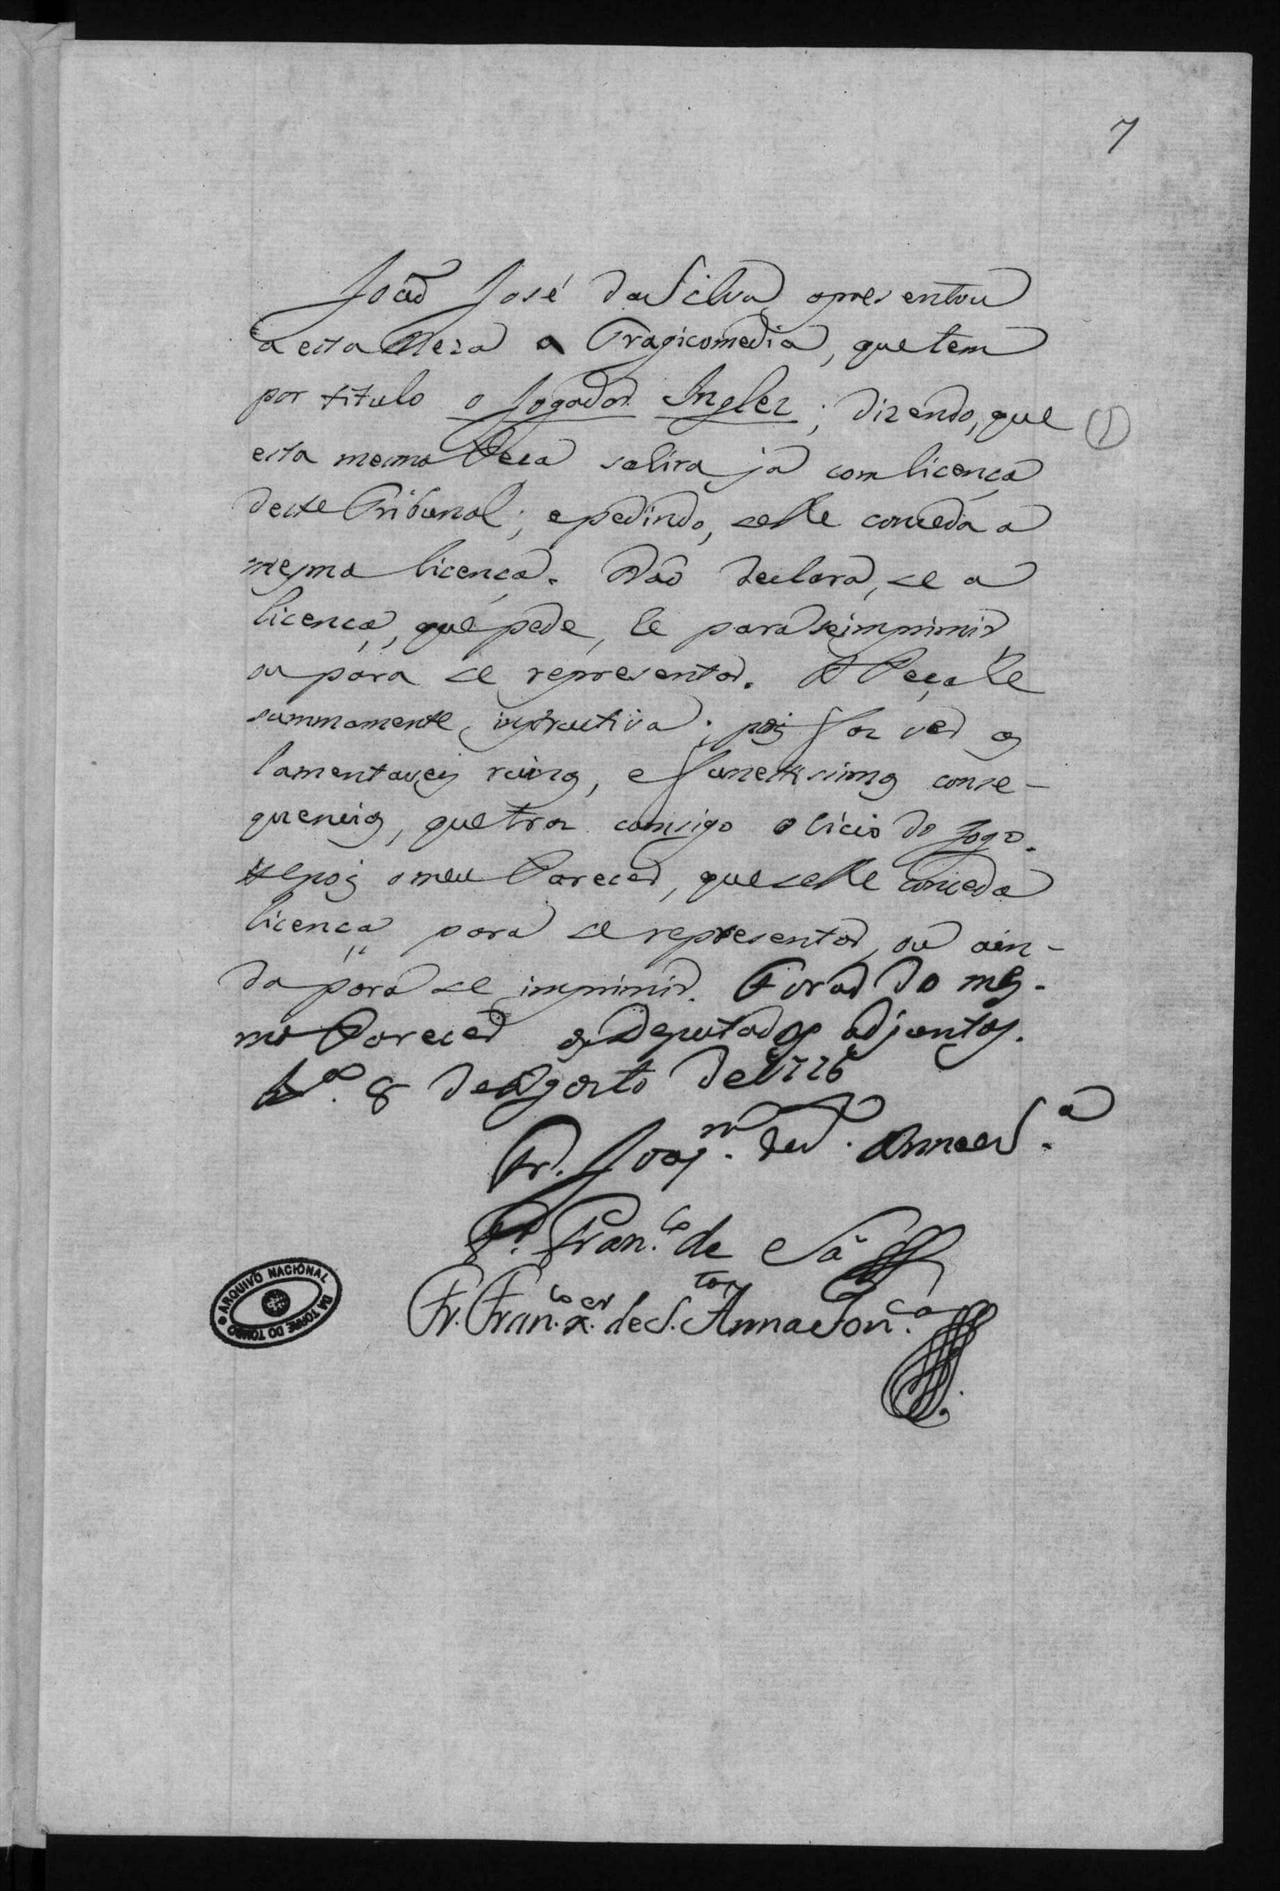 7
João José da Silva apresentou
a esta Meza a Tragicomedia, que tem
por titulo o Jogador Inglez; dizendo, que
esta mesma Peca sahira já com licença
deste Tribunal; e pedindo, se lhe conceda a
mesma licença. Não declara, se a
licença, que pede, he para se imprimir,
ou para se representar. A Peça he
summamente instructiva; pois faz ver os
lamentaveis ruinas, e funestissimas conse-
quencias, que traz consigo o vicio do Jogo.
He pois o meu Parecer, que se lhe conceda
licença para se representar, ou ain-
da para se imprimir. Forão do mes-
mo Parecer os Deputados adjuntos.
Lxª. 8 de Agosto de 1776
Fr. Joaqm. de S. Anna e Sª.
Fr. Franco. de Sá
Fr. Franco. Xer. de S. Anna Fonca.
(1)
ARQUIVO NACIONAL DA TORRE DO TOMBO